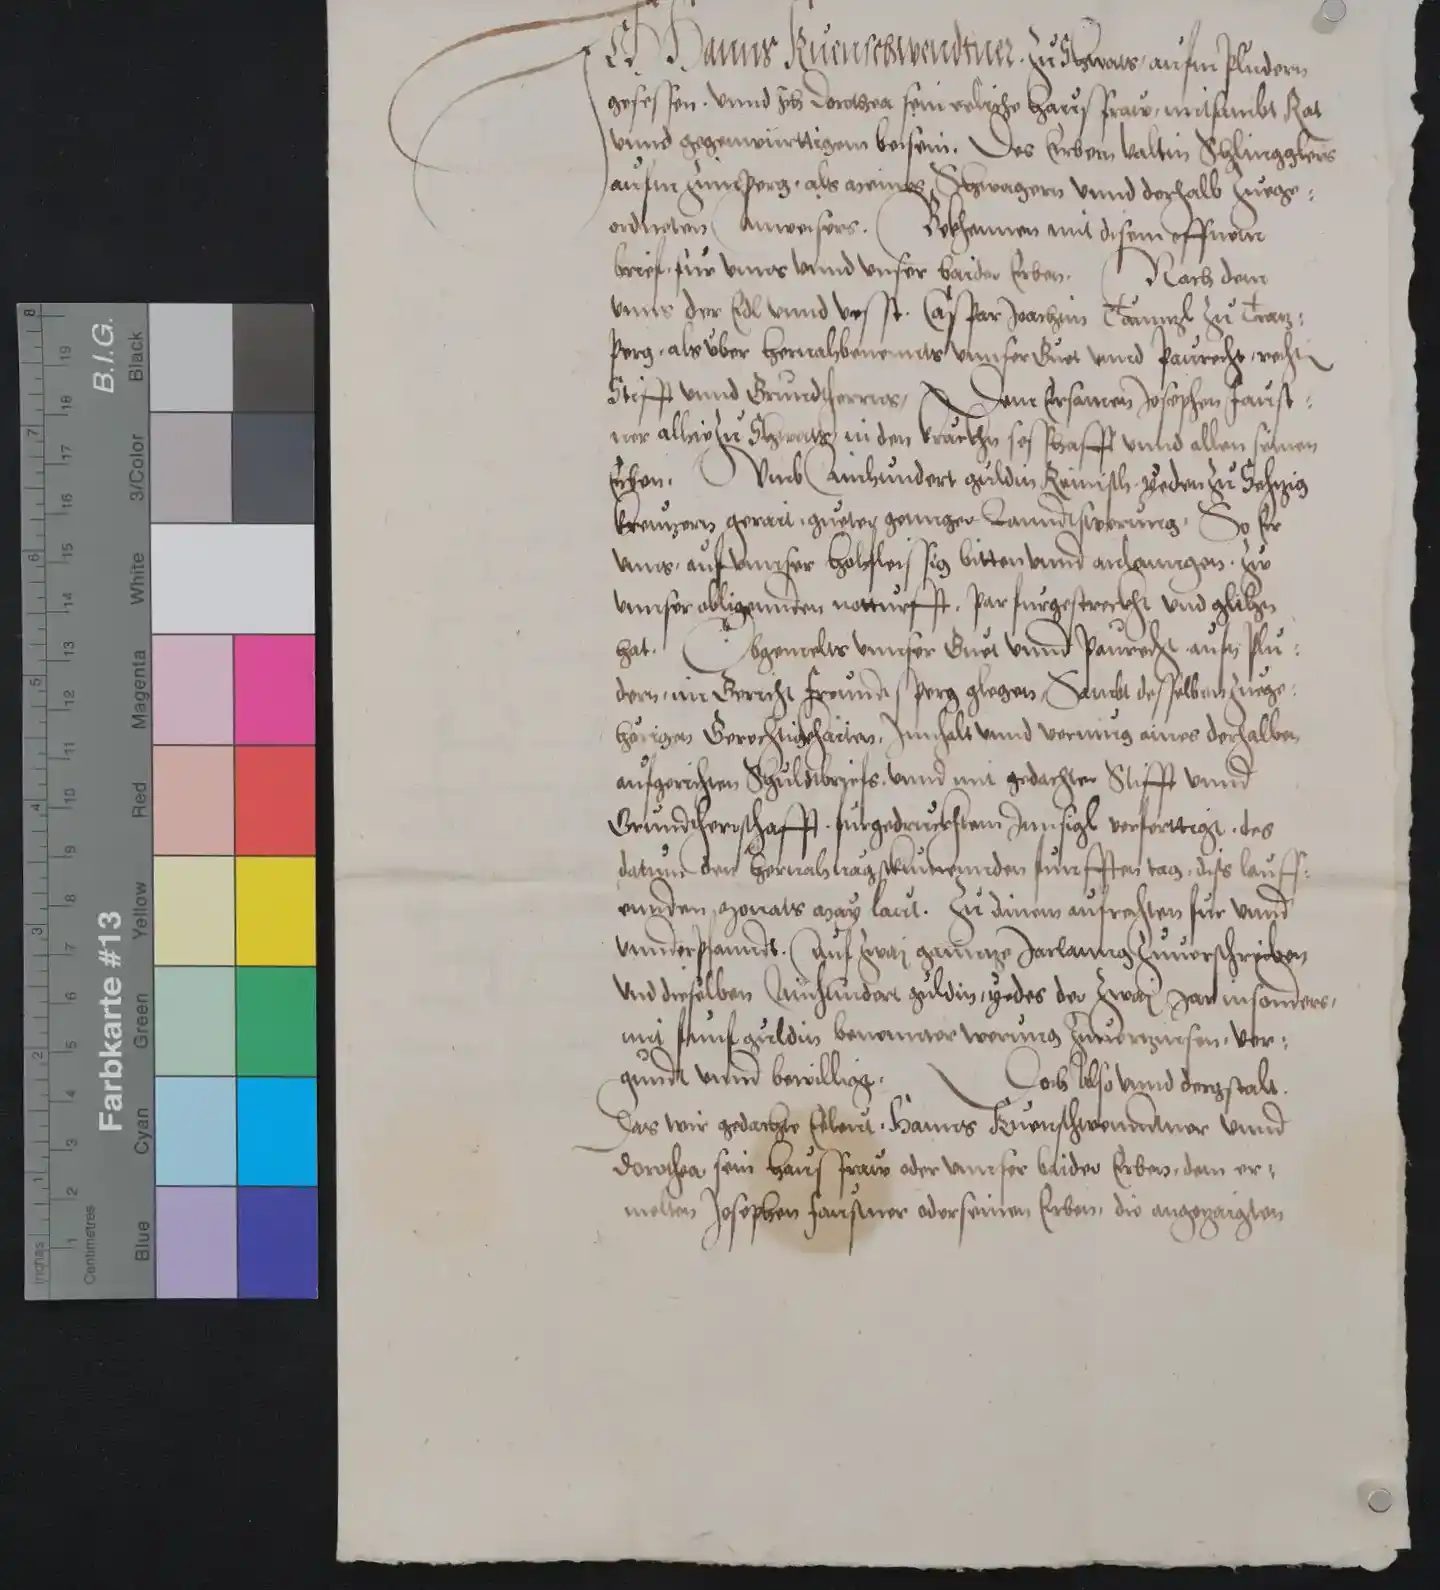 Ich Hanns Kuenschwendtner. zu Schwats, aufm Pludern
gesessen. vnnd Ich Dorothea sein eeliche haussfraw, mitsambt Rat
vnnd gegenwürttigem beisein. Des Erbern Valtin Schlingglers
aufm Zintperg, als meines Schwagern vnnd derhalb zuege:
ordneten Anweisers. Bekhennen mit disem offnem
brief, für vnns vnnd vnser baider Erben. Nach dem
vnns der Edl vnnd vesst. Casspar Joachim Tänntzl zu Tratz:
perg, als über hernachbenennts vnnser Guet vnnd Paurecht, recht
Stifft vnnd Grundtherrns, Dem Ersamen Josephen Faust:
ner alhie zu Schwats, in den krackhn sesshafft vnnd allen seinen
Erben. Vmb Ainhundert guldin Reinisch. yeden zu Sechzig
kreuzern gerait, gueter genuger Lanndtswerung, So Er
vnns, auf vnnser hochfleissig bitten vnnd anlanngen. zu
vnnser obligennden notturfft. par furgestreckht vnd glichn
hat. Obgemelts vnnser Guet vnnd Paurecht aufm Plu:
dern, im Gericht Freundtsperg glegen, Sambt desselben zuege:
hörigen Gerechtigkhaiten, Innhalt vnnd vermüg aines derhalben
aufgerichten Schuldtbriefs. vnnd mit gedachter Stifft vnnd
Grundtherrschafft. furgedruckhtem Innsigl verferttigt. des
datum den hernachuolgkhumennden funfften tag, diss lauff:
ennden Monats May laut. Zu ainem aufrechten fur vnnd
vnnderpfanndt. Auf zway gannze Jarlanng zuuerschreiben
vnd dieselben Ainhundert guldin, yedes der zway Jar insonders,
mit funf guldin benennter werung zuuerzinsen, ver:
gundt vnnd bewilligt. Doch Also vnnd dergstalt.
Das wir gedachte Eeleut. Hanns Kuenschwenndtner vnnd
Dorothea sein haussfraw oder vnnser baider Erben, dem er:
melten Josephen Faustner oder seinen Erben, die angezaigten
Farbkarte #13
B.I.G.
Inches
Centimetres
Blue
Cyan
Green
Yellow
Red
Magenta
White
3/Color
Black